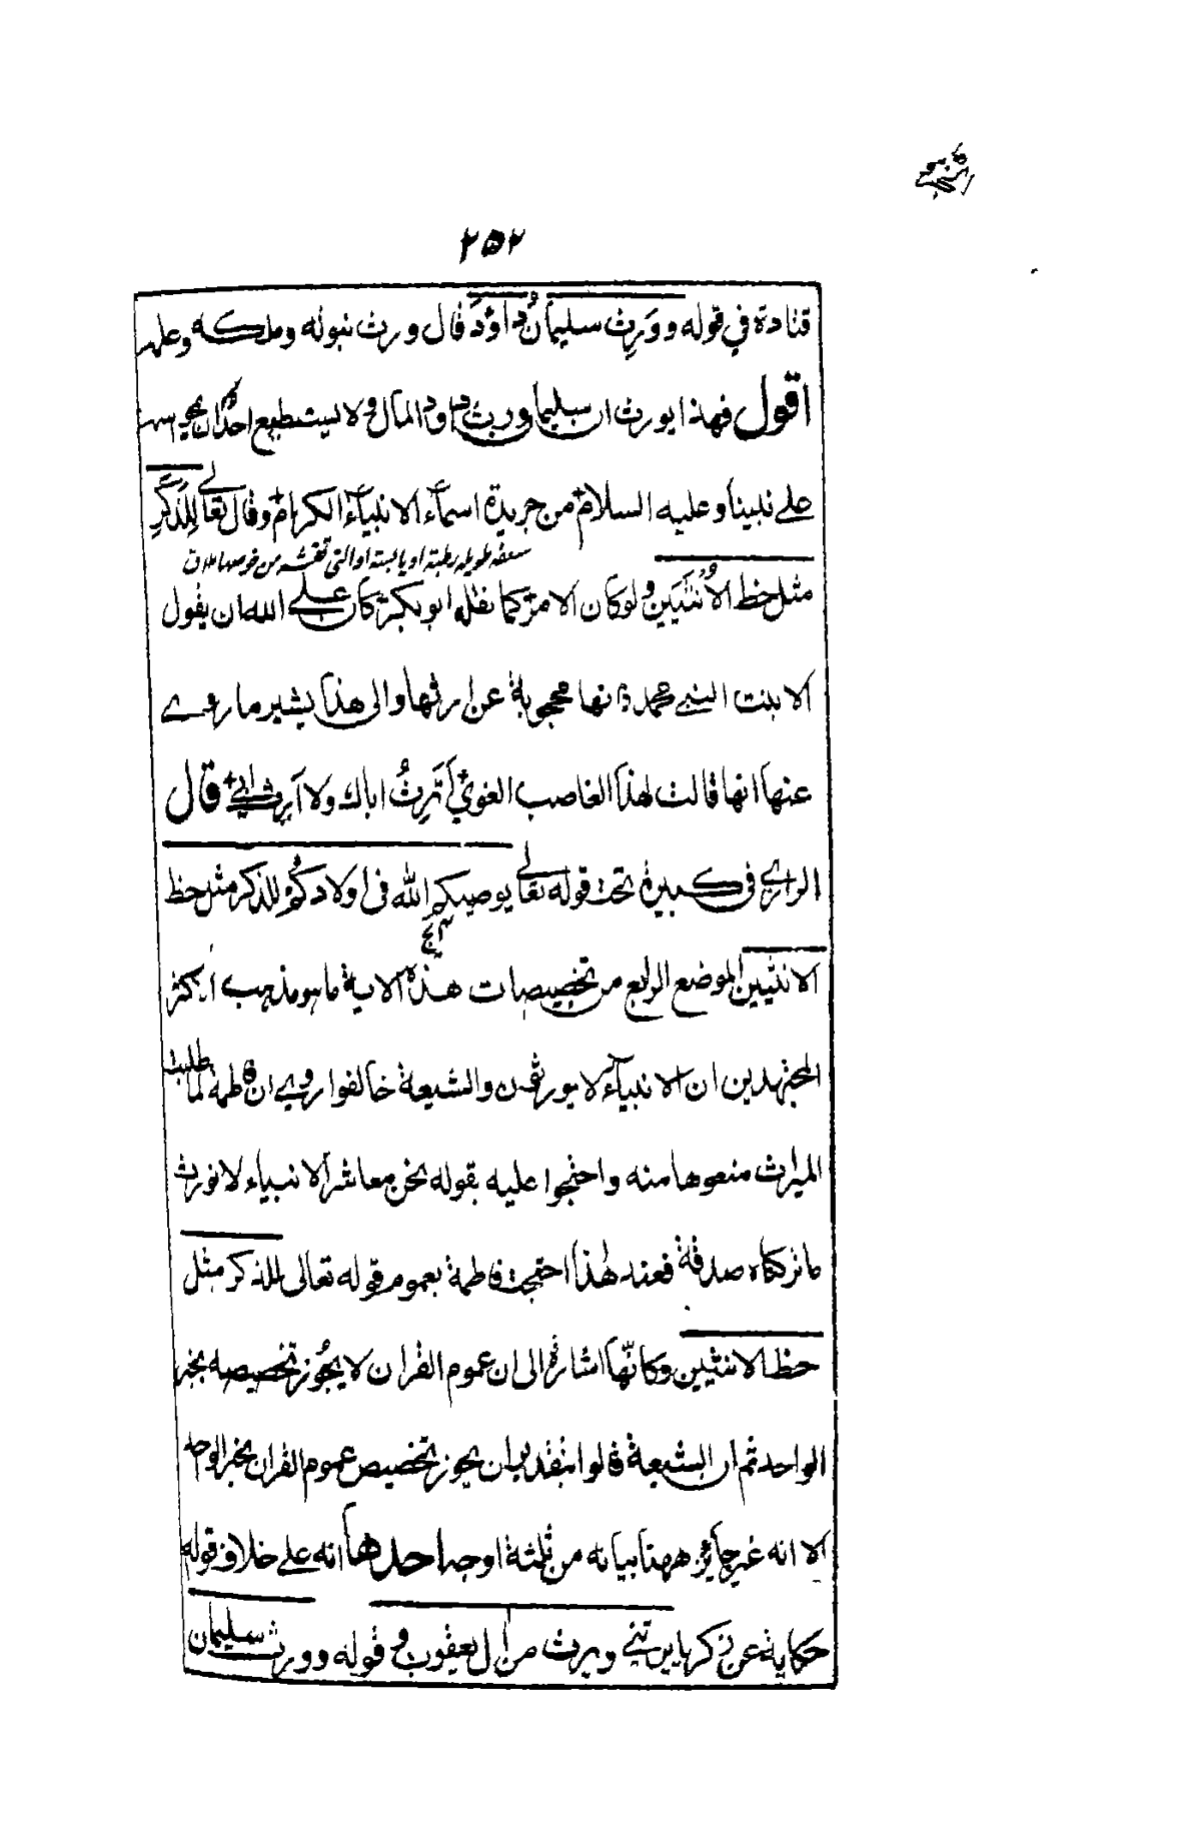 ٢٥٢
قتادة في قوله وَوَرِثَ سليمانُ داوُدَ قال ورث نبوته وملكه وعلمه
اقول فهذا يورث ان سليمان ورث داود المال ولا يستطيع احد ان
على نبينا وعليه السلام من جريدة اسماء الانبياء الكرام وقال تعالى لِلذَّكَرِ
سعفه طويله رطبة او يابسة او التي تقشر من خوصها ق
مثل حظ الأُنثَيَينِ ولو كان الامر كما نقله ابو بكر كان على الله ان يقول
الا بنت النبي محمد فانها محجوبة عن ارثها والى هذا يشير ما روى
عنها انها قالت لهذا الغاصب الغوي أَتَرِثُ اباك ولا أَرِث ابي قال
الرازي في كبيره تحت قوله تعالى يوصيكم الله في اولادكم للذكر مثل حظ
الانثيين الموضع الرابع من تخصيصات هذه الاية ما هو مذهب اكثر
المجتهدين ان الانبياء لا يورثون والشيعة خالفوا روي ان فاطمة لما طلبت
الميراث منعوها منه واحتجوا عليه بقوله نحن معاشر الانبياء لا نورث
ما تركناه صدقة فعند هذا احتجت فاطمة بعموم قوله تعالى للذكر مثل
حظ الانثيين وكانّها اشارة الى ان عموم القران لا يجوز تخصيصه بخبر
الواحد ثم ان الشيعة قالوا بتقدير ان يجوز تخصيص عموم القران بخبر الواحد
الا انه غير جائز ههنا بيانه من ثلثة اوجه احدها انه على خلاف قوله
حكاية عن زكريا يرثني ويرث من ال يعقوب وقوله وورث سليمان